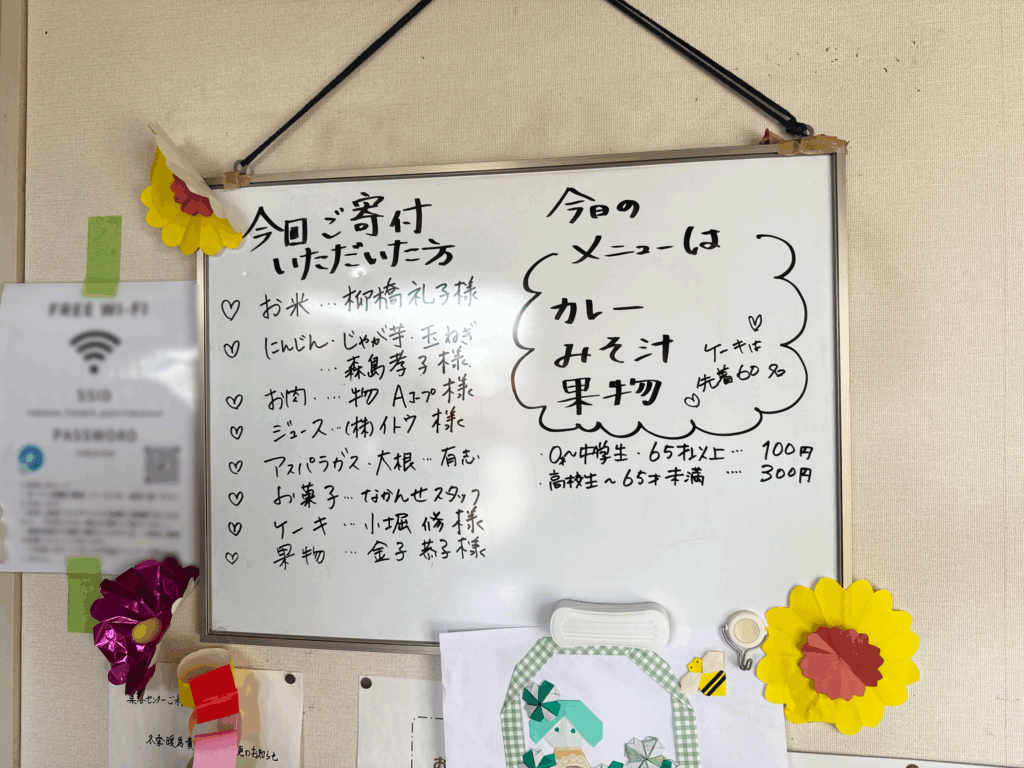 今日ご寄付
いただいた方
♡ お米…柳橋礼子様
♡ にんじん・じゃが芋・玉ねぎ
…森島孝子様
♡ お肉‥‥物 Aコープ様
♡ ジュース‥(株)イトウ 様
♡ アスパラガス・大根…有志
♡ お菓子…なかんせスタッフ
♡ ケーキ …小堀 修様
♡ 果物 …金子 恭子様
今日の
メニューは
カレー
みそ汁
果物
♡
ケーキは
先着60名
♡
・0才〜中学生・65才以上… 100円
・高校生〜65才未満 ‥‥ 300円
FREE WI-FI
SSID
PASSWORD
冬季暖房
更のお知らせ